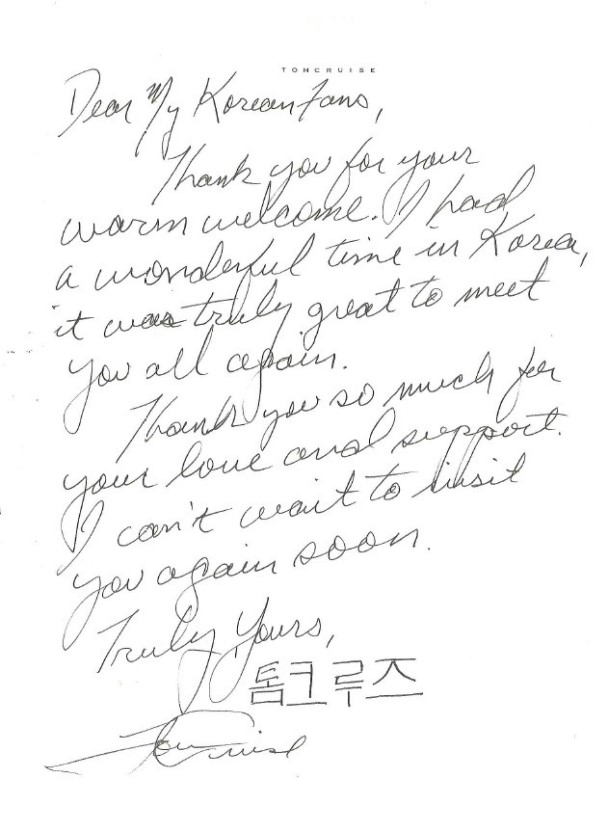 TOMCRUISE
Dear My Korean Fans,
Thank you for your
warm welcome. I had
a wonderful time in Korea,
it was truly great to meet
you all again.
Thank you so much for
your love and support.
I can't wait to visit
you again soon.
Truly Yours,
톰크루즈
Tom Cruise